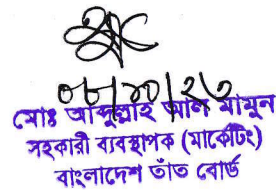 ০৮/১০/২৩
মোঃ আব্দুল্লাহ আল মামুন
সহকারী ব্যবস্থাপক (মার্কেটিং)
বাংলাদেশ তাঁত বোর্ড